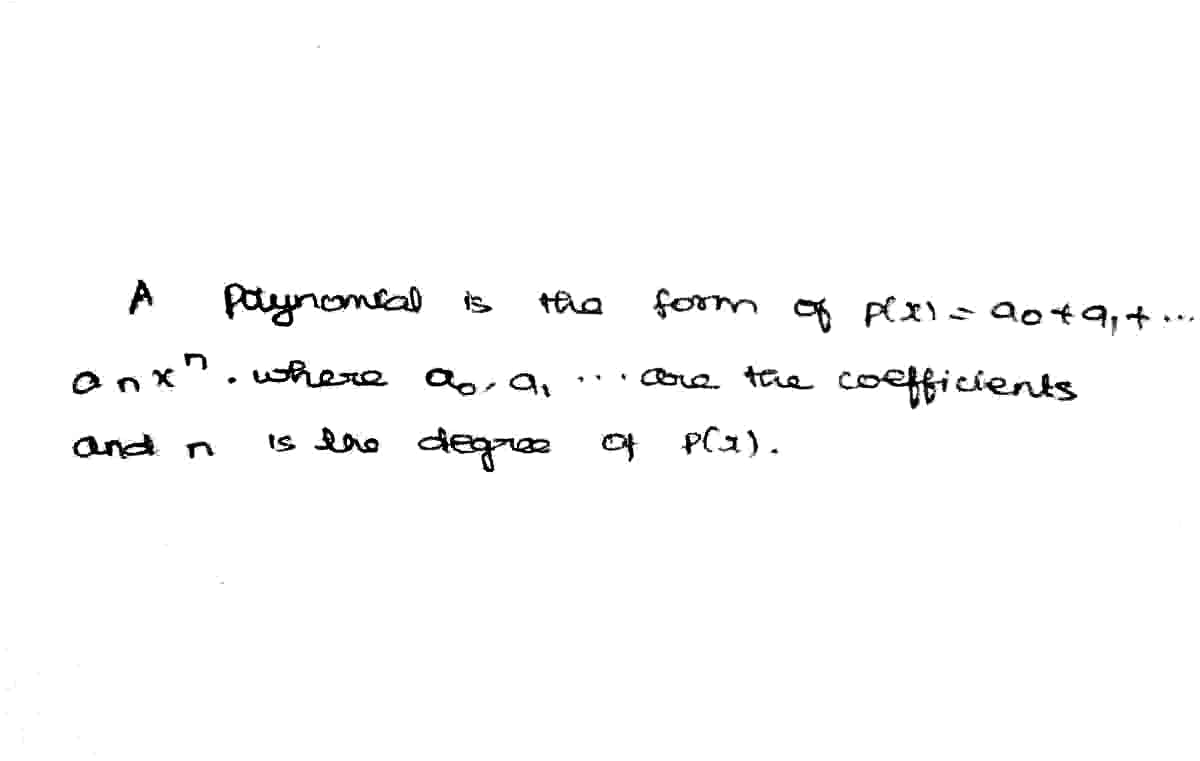 A polynomial is the form of p(x) = a₀ + a₁ + ...
aₙxⁿ. where a₀, a₁ ... are the coefficients
and n is the degree of p(x).